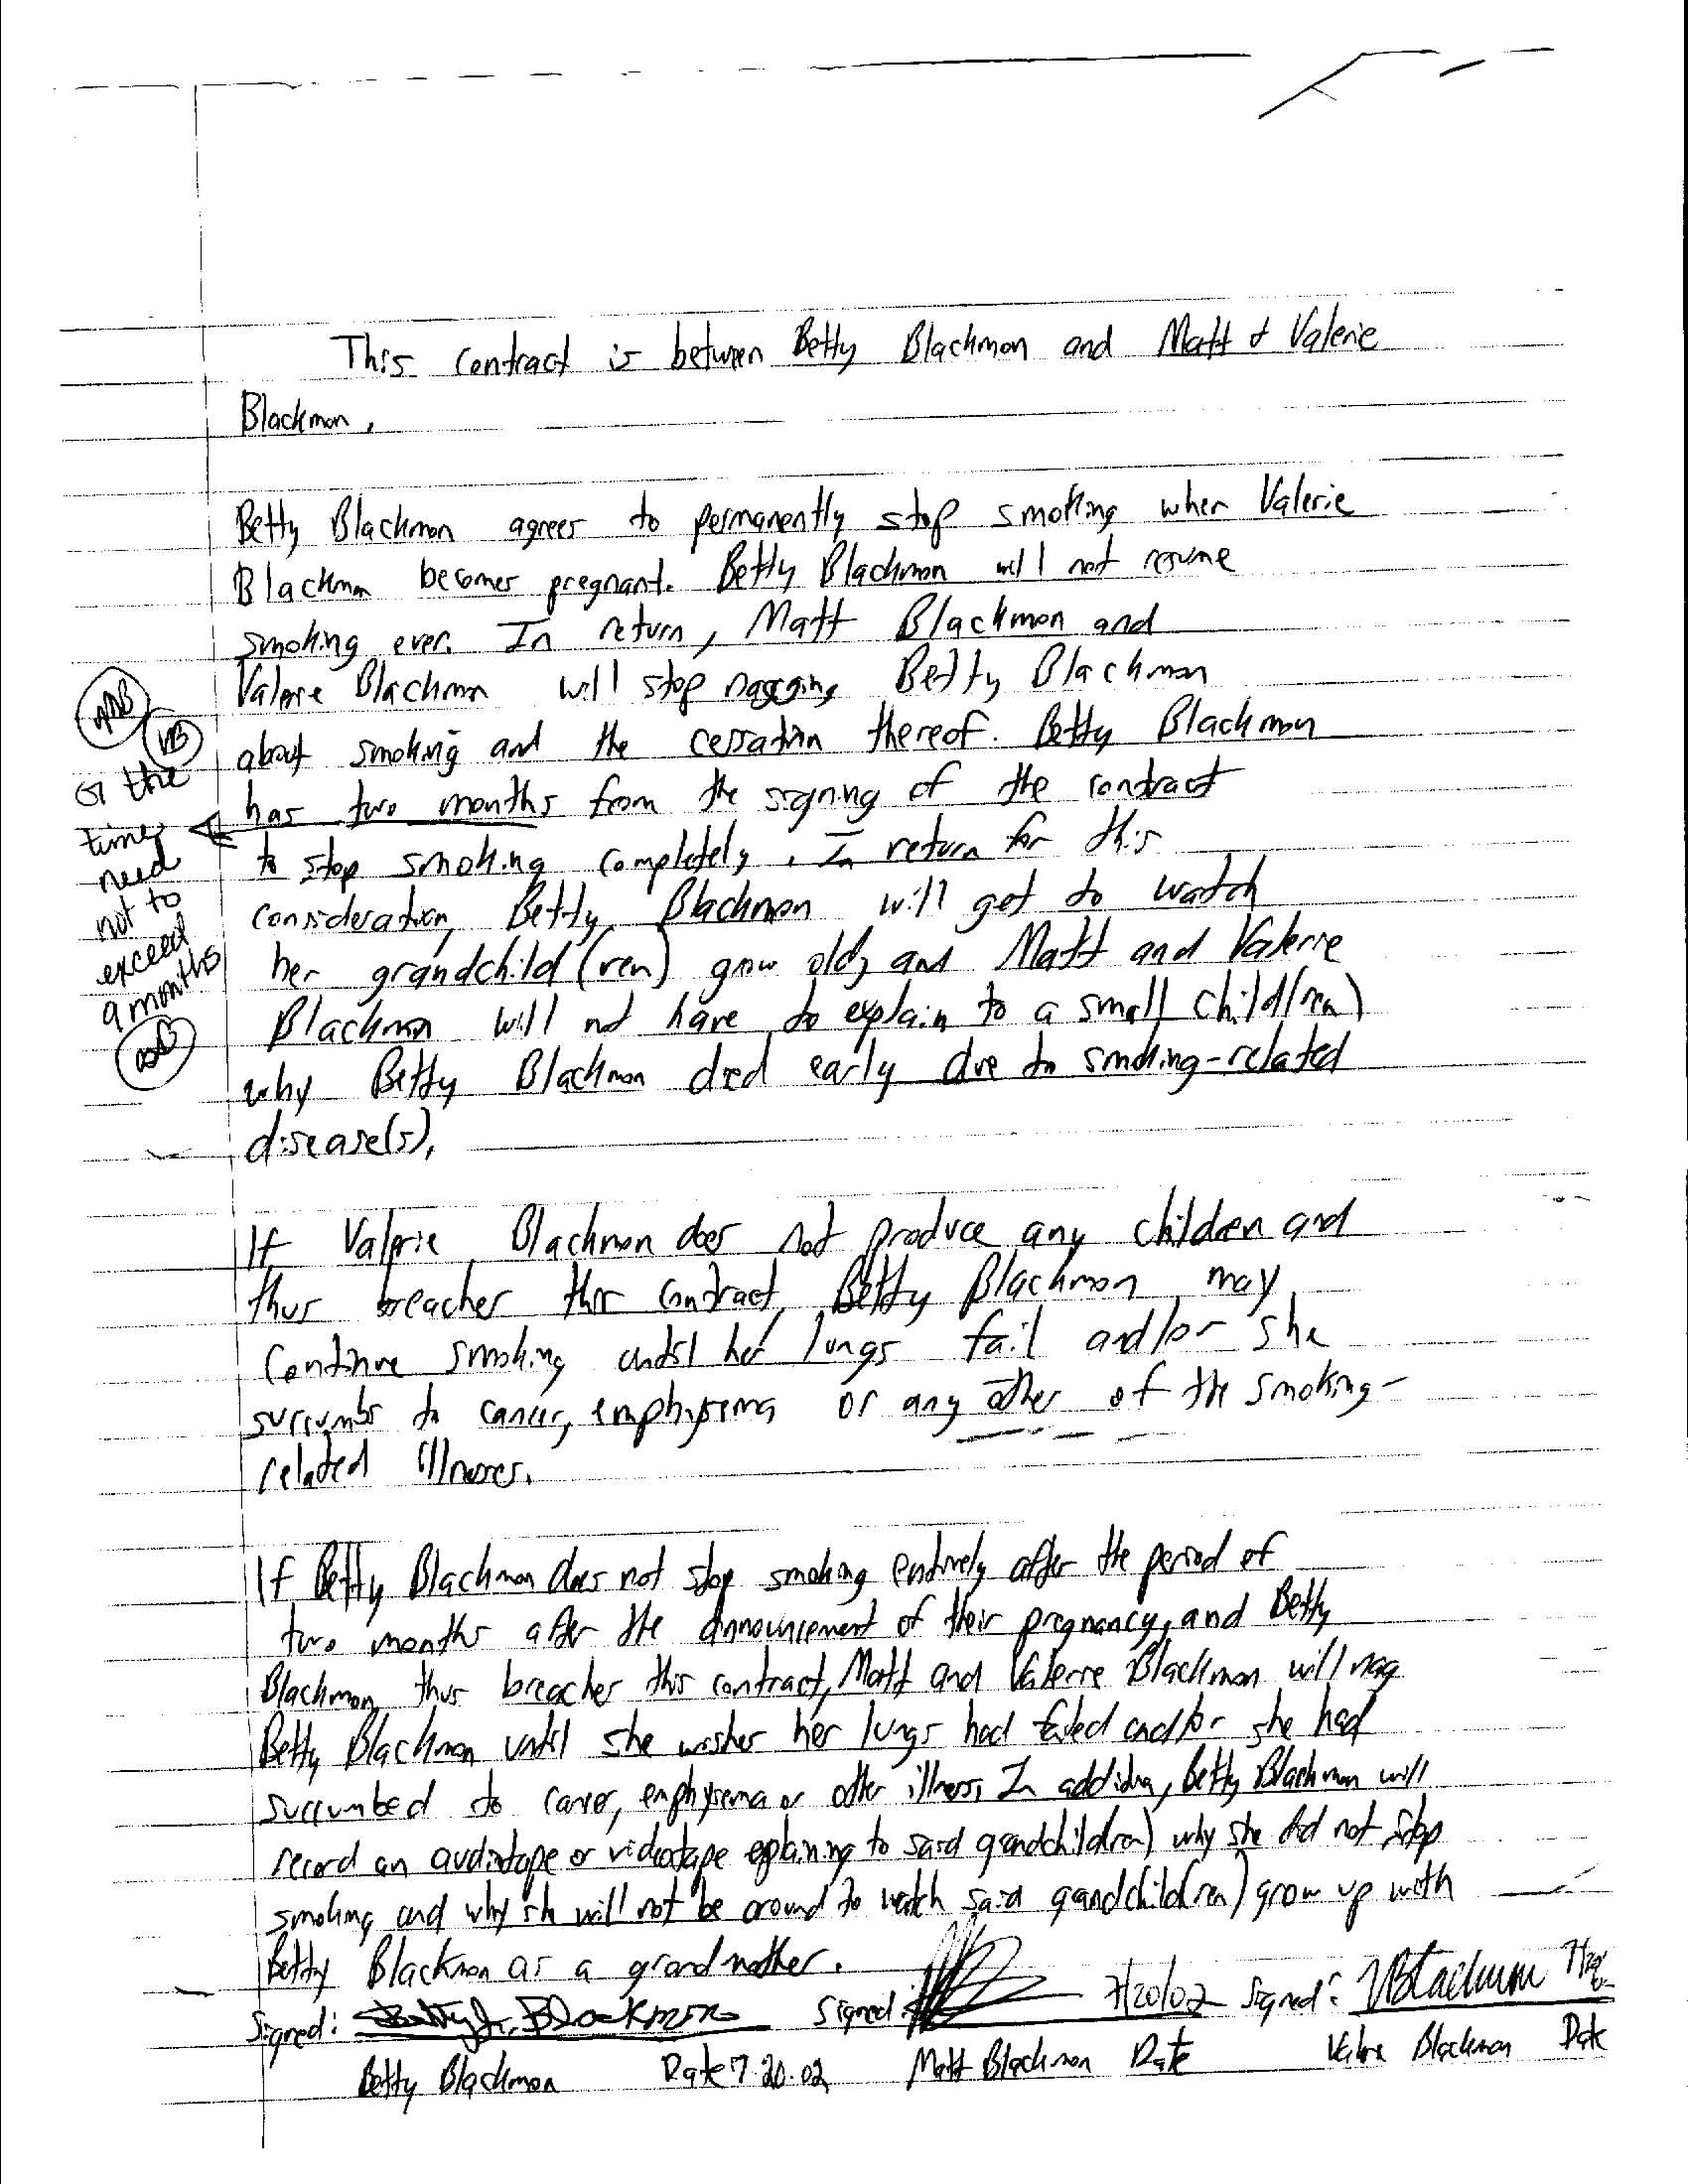 This contract is between Betty Blackmon and Matt & Valerie
Blackmon.
Betty Blackmon agrees to permanently stop smoking when Valerie
Blackmon becomes pregnant. Betty Blackmon will not resume
smoking ever. In return, Matt Blackmon and
Valerie Blackmon will stop nagging Betty Blackmon
about smoking and the cessation thereof. Betty Blackmon
has two months from the signing of the contract
to stop smoking completely. In return for this
consideration, Betty Blackmon will get to watch
her grandchild(ren) grow old, and Matt and Valerie
Blackmon will not have to explain to a small child(ren)
why Betty Blackmon died early due to smoking-related
disease(s).
VB
or the
time
need
not to
exceed
9 months
If Valerie Blackmon does not produce any children and
thus breaches this contract, Betty Blackmon may
continue smoking until her lungs fail and/or she
succumbs to cancer, emphysema or any other of the smoking-
related illnesses.
If Betty Blackmon does not stop smoking entirely after the period of
two months after the announcement of their pregnancy, and Betty
Blackmon thus breaches this contract, Matt and Valerie Blackmon will nag
Betty Blackmon until she wishes her lungs had failed and/or she had
succumbed to cancer, emphysema or other illness. In addition, Betty Blackmon will
record an audiotape or videotape explaining to said grandchild(ren) why she did not stop
smoking and why she will not be around to watch said grandchild(ren) grow up with
Betty Blackmon as a grandmother.
Signed: Betty J. Blackmon Signed: 7/20/02 Signed: VBlackmon
Betty Blackmon Date 7.20.02 Matt Blackmon Date Valerie Blackmon Date